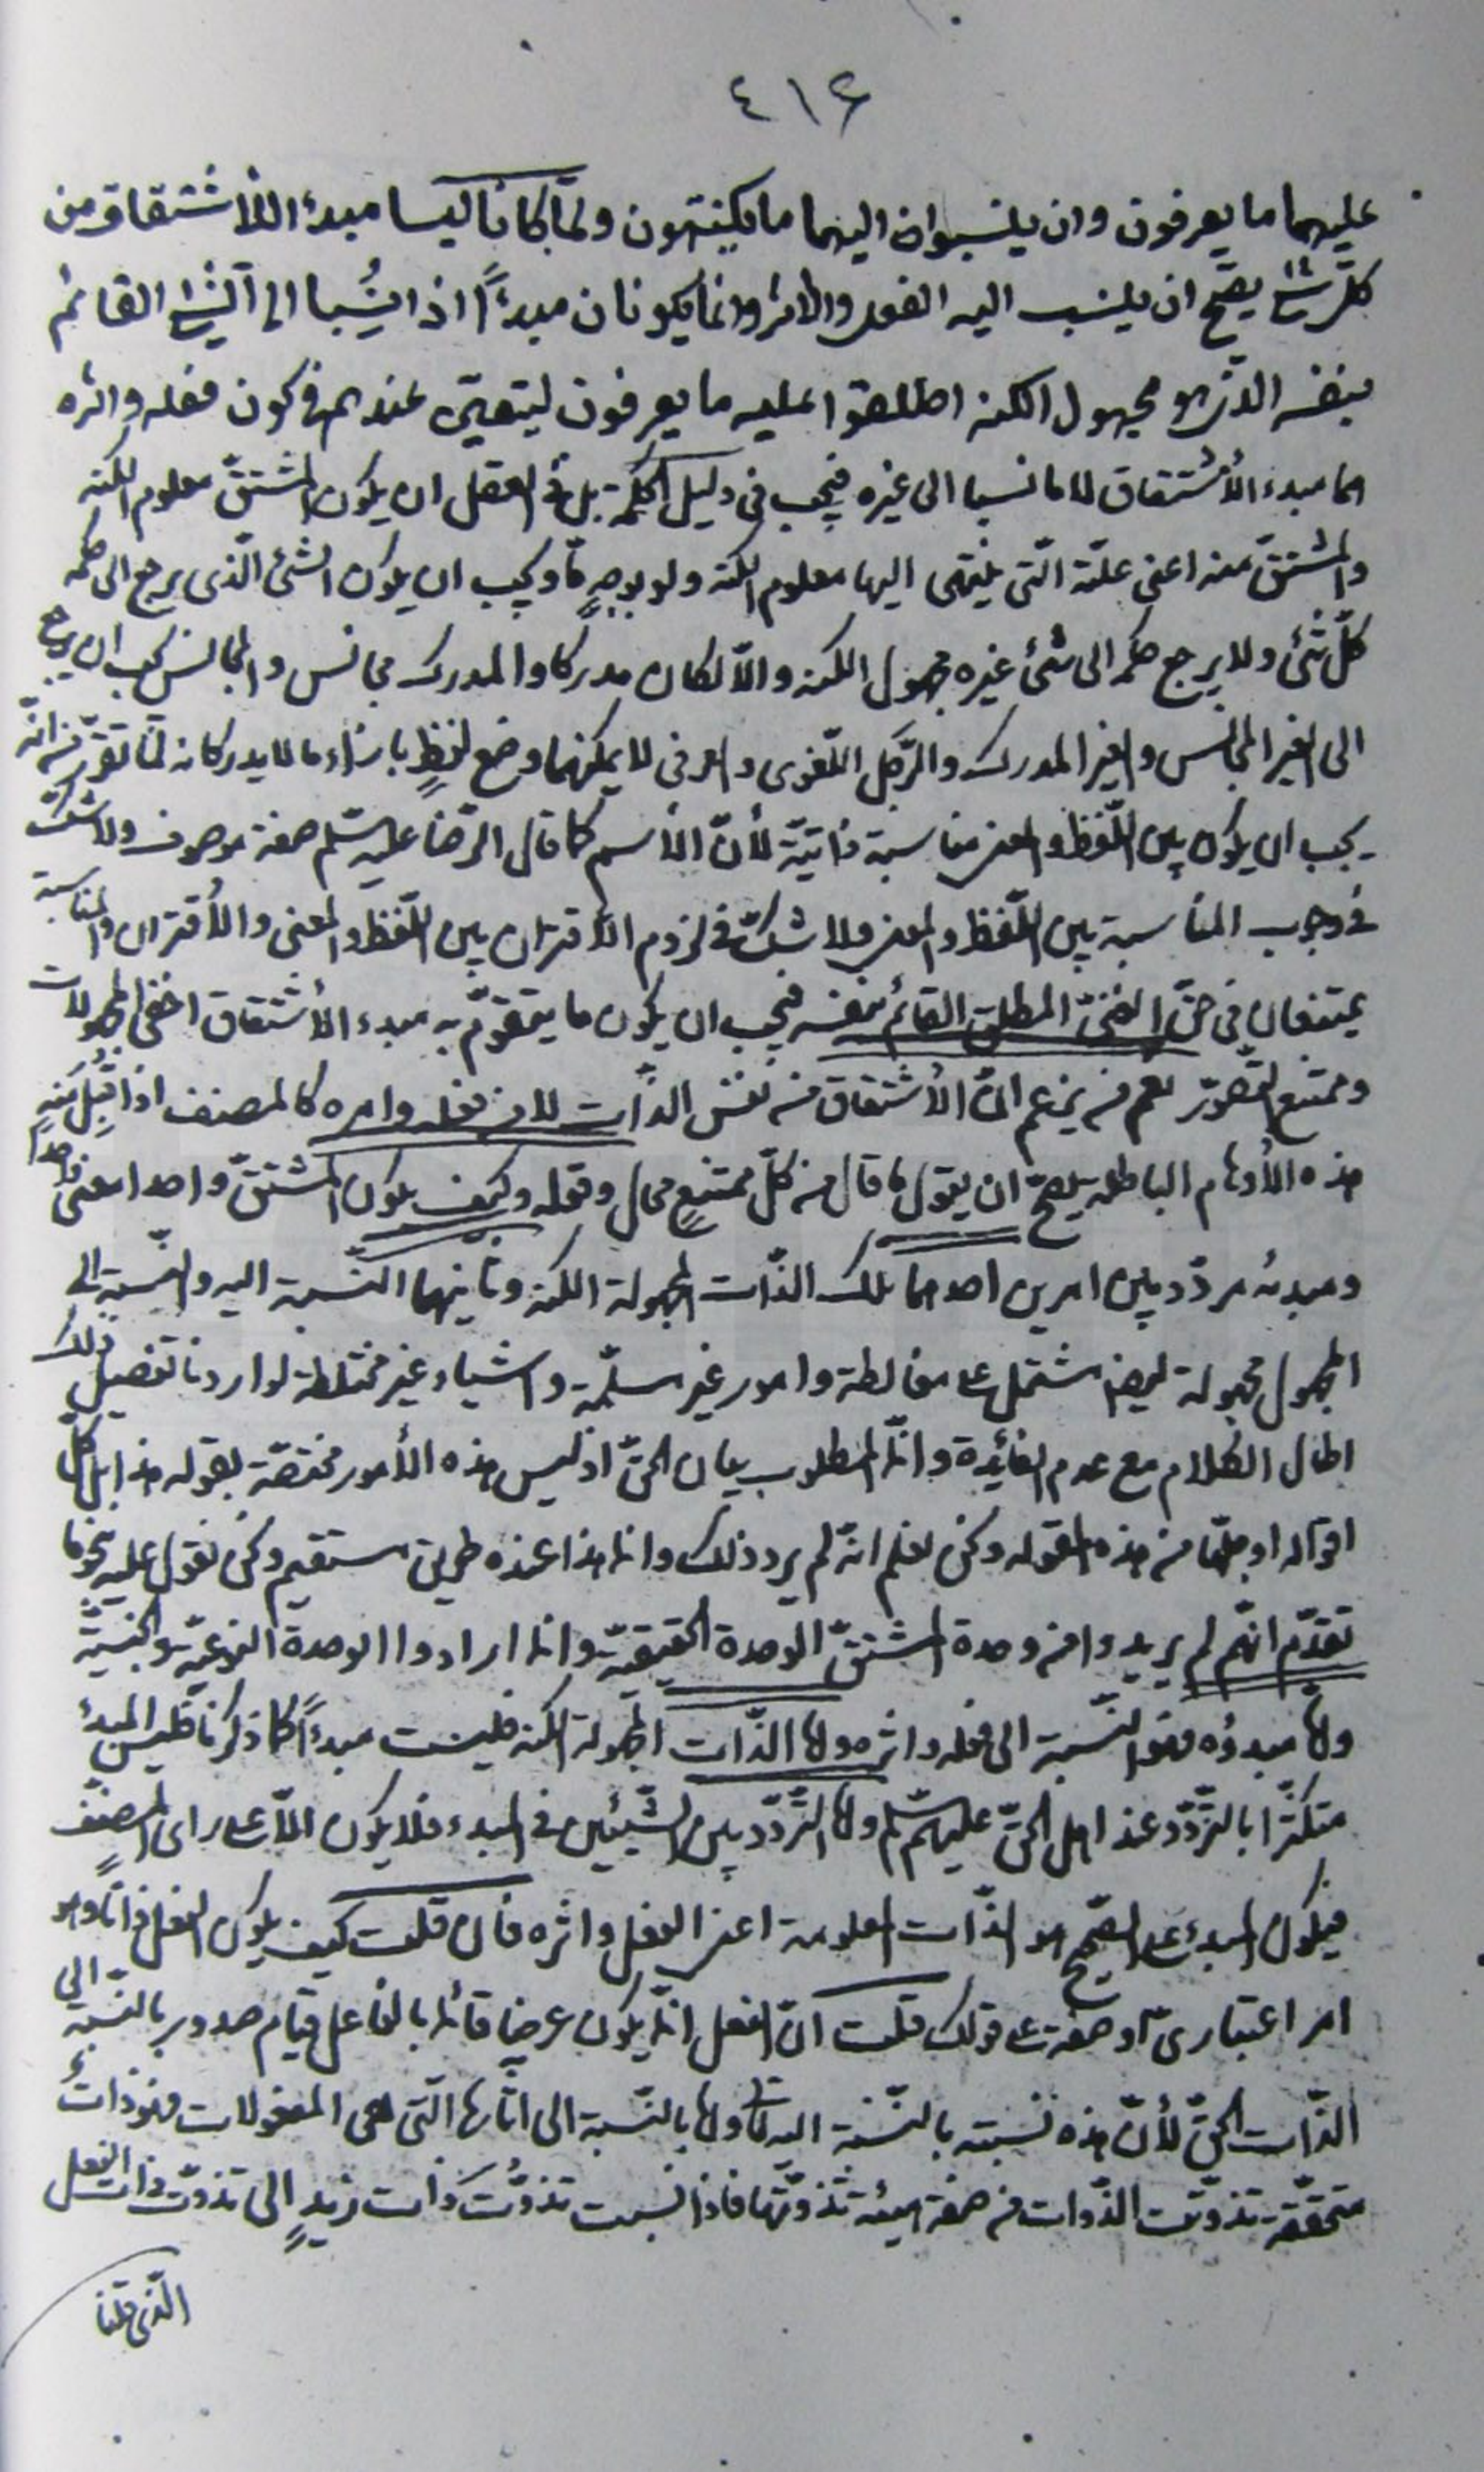 ٤١٤
عليهما ما يعرفون وان ينسبوا اليهما ما يكتنهون ولمّا كانا ليسا مبدء الاشتقاق من
كلّ شئ يصحّ ان ينسب اليه الفعل والاثر وانما يكونان مبدءًا اذا نُسبا الى الشئ القائم
بنفسه الذى هو مجهول الكنه اطلقوا عليه ما يعرفون ليتعيّن عندهم فى كون فعله واثره
هما مبدء الأشتقاق لا ما نسبا الى غيره فيجب فى دليل الحكمة بل فى العقل ان يكون المشتقّ معلوم الكنه
والمشتقّ منه اعنى علّته الّتى ينتهى اليها معلوم الكنه ولو بوجهٍ مّا ويجب ان يكون الشئ الّذى يرجع الى حكمه
كلّ شئ ولا يرجع حكمه الى شئ غيره مجهول الكنه والاّ لكان مدركا والمدرك مجانس والمجانس يجب ان يرجع
الى الغير المجانس والغير المدرك والرّجل اللّغوى والعرفى لا يمكنهما وضع لفظٍ بازاء ما لا يدركانه لما تقرّر من انّه
يجب ان يكون بين اللّفظ والمعنى مناسبة ذاتيّة لأنّ الأسم كما قال الرّضا عليه السّلم صفة موصوف ولا شكّ
فى وجوب المناسبة بين اللّفظ والمعنى ولا شكّ فى لزوم الأقتران بين اللّفظ والمعنى والأقتران والمناسبة
يمتنعان فى حقّ الغنىّ المطلق القائم بنفسه فيجب ان يكون ما يتقوّم به مبدء الأشتقاق اخفى المجهولات
وممتنع التّصوّر نعم من يزعم انّ الأشتقاق من نفس الذّات لا من فعله وامره كالمصنف اذا قُبِل منه
هذه الأوهام الباطلة يصحّ ان يقول ما قال من كلّ ممتنعٍ محال وقوله وكيف يكون المشتقّ واحدا معنى واحدا
ومبدئه مردّد بين امرين احدهما تلك الذّات المجهولة الكنه وثانيهما النّسبة اليه والنّسبة الى
المجهول مجهولة ايضا مشتمل على مغالطة وامور غير مسلّمة واشياء غير مختلطة لو اردنا تفصيل ذلك
اطال الكلام مع عدم الفائدة وانّما المطلوب بيان الحقّ اذ ليس هذه الأمور مختصّة بقوله هذا بل كلّ
اقواله او جلّها من هذه المقوله ونحن نعلم انّه لم يرد ذلك وانما هذا عنده طريق مستقيم ونحن نقول عليه نحو ما
تقدّم انّهم لم يريدوا من وحدة المشتقّ الوحدة الحقيقيّة وانما ارادوا الوحدة النوعيّة والجنسيّة
وامّا مبدؤه فهو النّسبة الى فعله واثره وامّا الذّات المجهولة الكنه فليست مبدءًا كما ذكرنا فليس المبدء
متكثّرا بالتّردّد عند اهل الحقّ عليهم السّلم وامّا التّردّد بين الشّيئين فى المبدء فلا يكون الاّ على راى المصنف
فيكون المبدء على الصّحيح هو الذّات المعلومة اعنى الفعل واثره فان قلت كيف يكون الفعل ذاتًا وهو
امر اعتبارىّ او صفة على قولك قلت انّ الفعل انما يكون عرضا قائما بالفاعل قيام صدور بالنّسبة الى
الذّات الحقّ لأنّ هذه نسبته بالنّسبة اليه تعا وامّا بالنّسبة الى آثارها الّتى هى المفعولات فهو ذات
متحقّقة تذوّتت الذّوات من صفة هيئة تذوّتها فاذا نسبت تذوّت ذات زيدٍ الى تذوّت ذات الفعل
الّذى قلنا